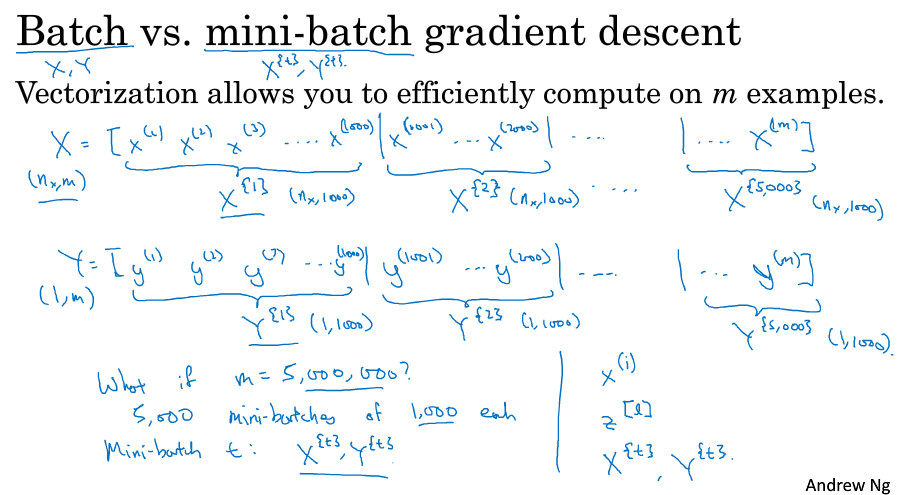 Batch vs. mini-batch gradient descent
X, Y X^{t}, Y^{t}.
Vectorization allows you to efficiently compute on m examples.
X = [x^(1) x^(2) x^(3) .... x^(1000) | x^(1001) ... x^(2000) | .... | .... x^(m)]
(n_x, m) X^{1} (n_x, 1000) X^{2} (n_x, 1000) .... X^{5,000} (n_x, 1000)
Y = [y^(1) y^(2) y^(3) ... y^(1000) | y^(1001) ... y^(2000) | .... | ... y^(m)]
(1, m) Y^{1} (1, 1000) Y^{2} (1, 1000) Y^{5,000} (1, 1000).
What if m = 5,000,000?
5,000 mini-batches of 1,000 each
Mini-batch t: X^{t}, Y^{t}
x^(i)
z^[l]
X^{t}, Y^{t}.
Andrew Ng